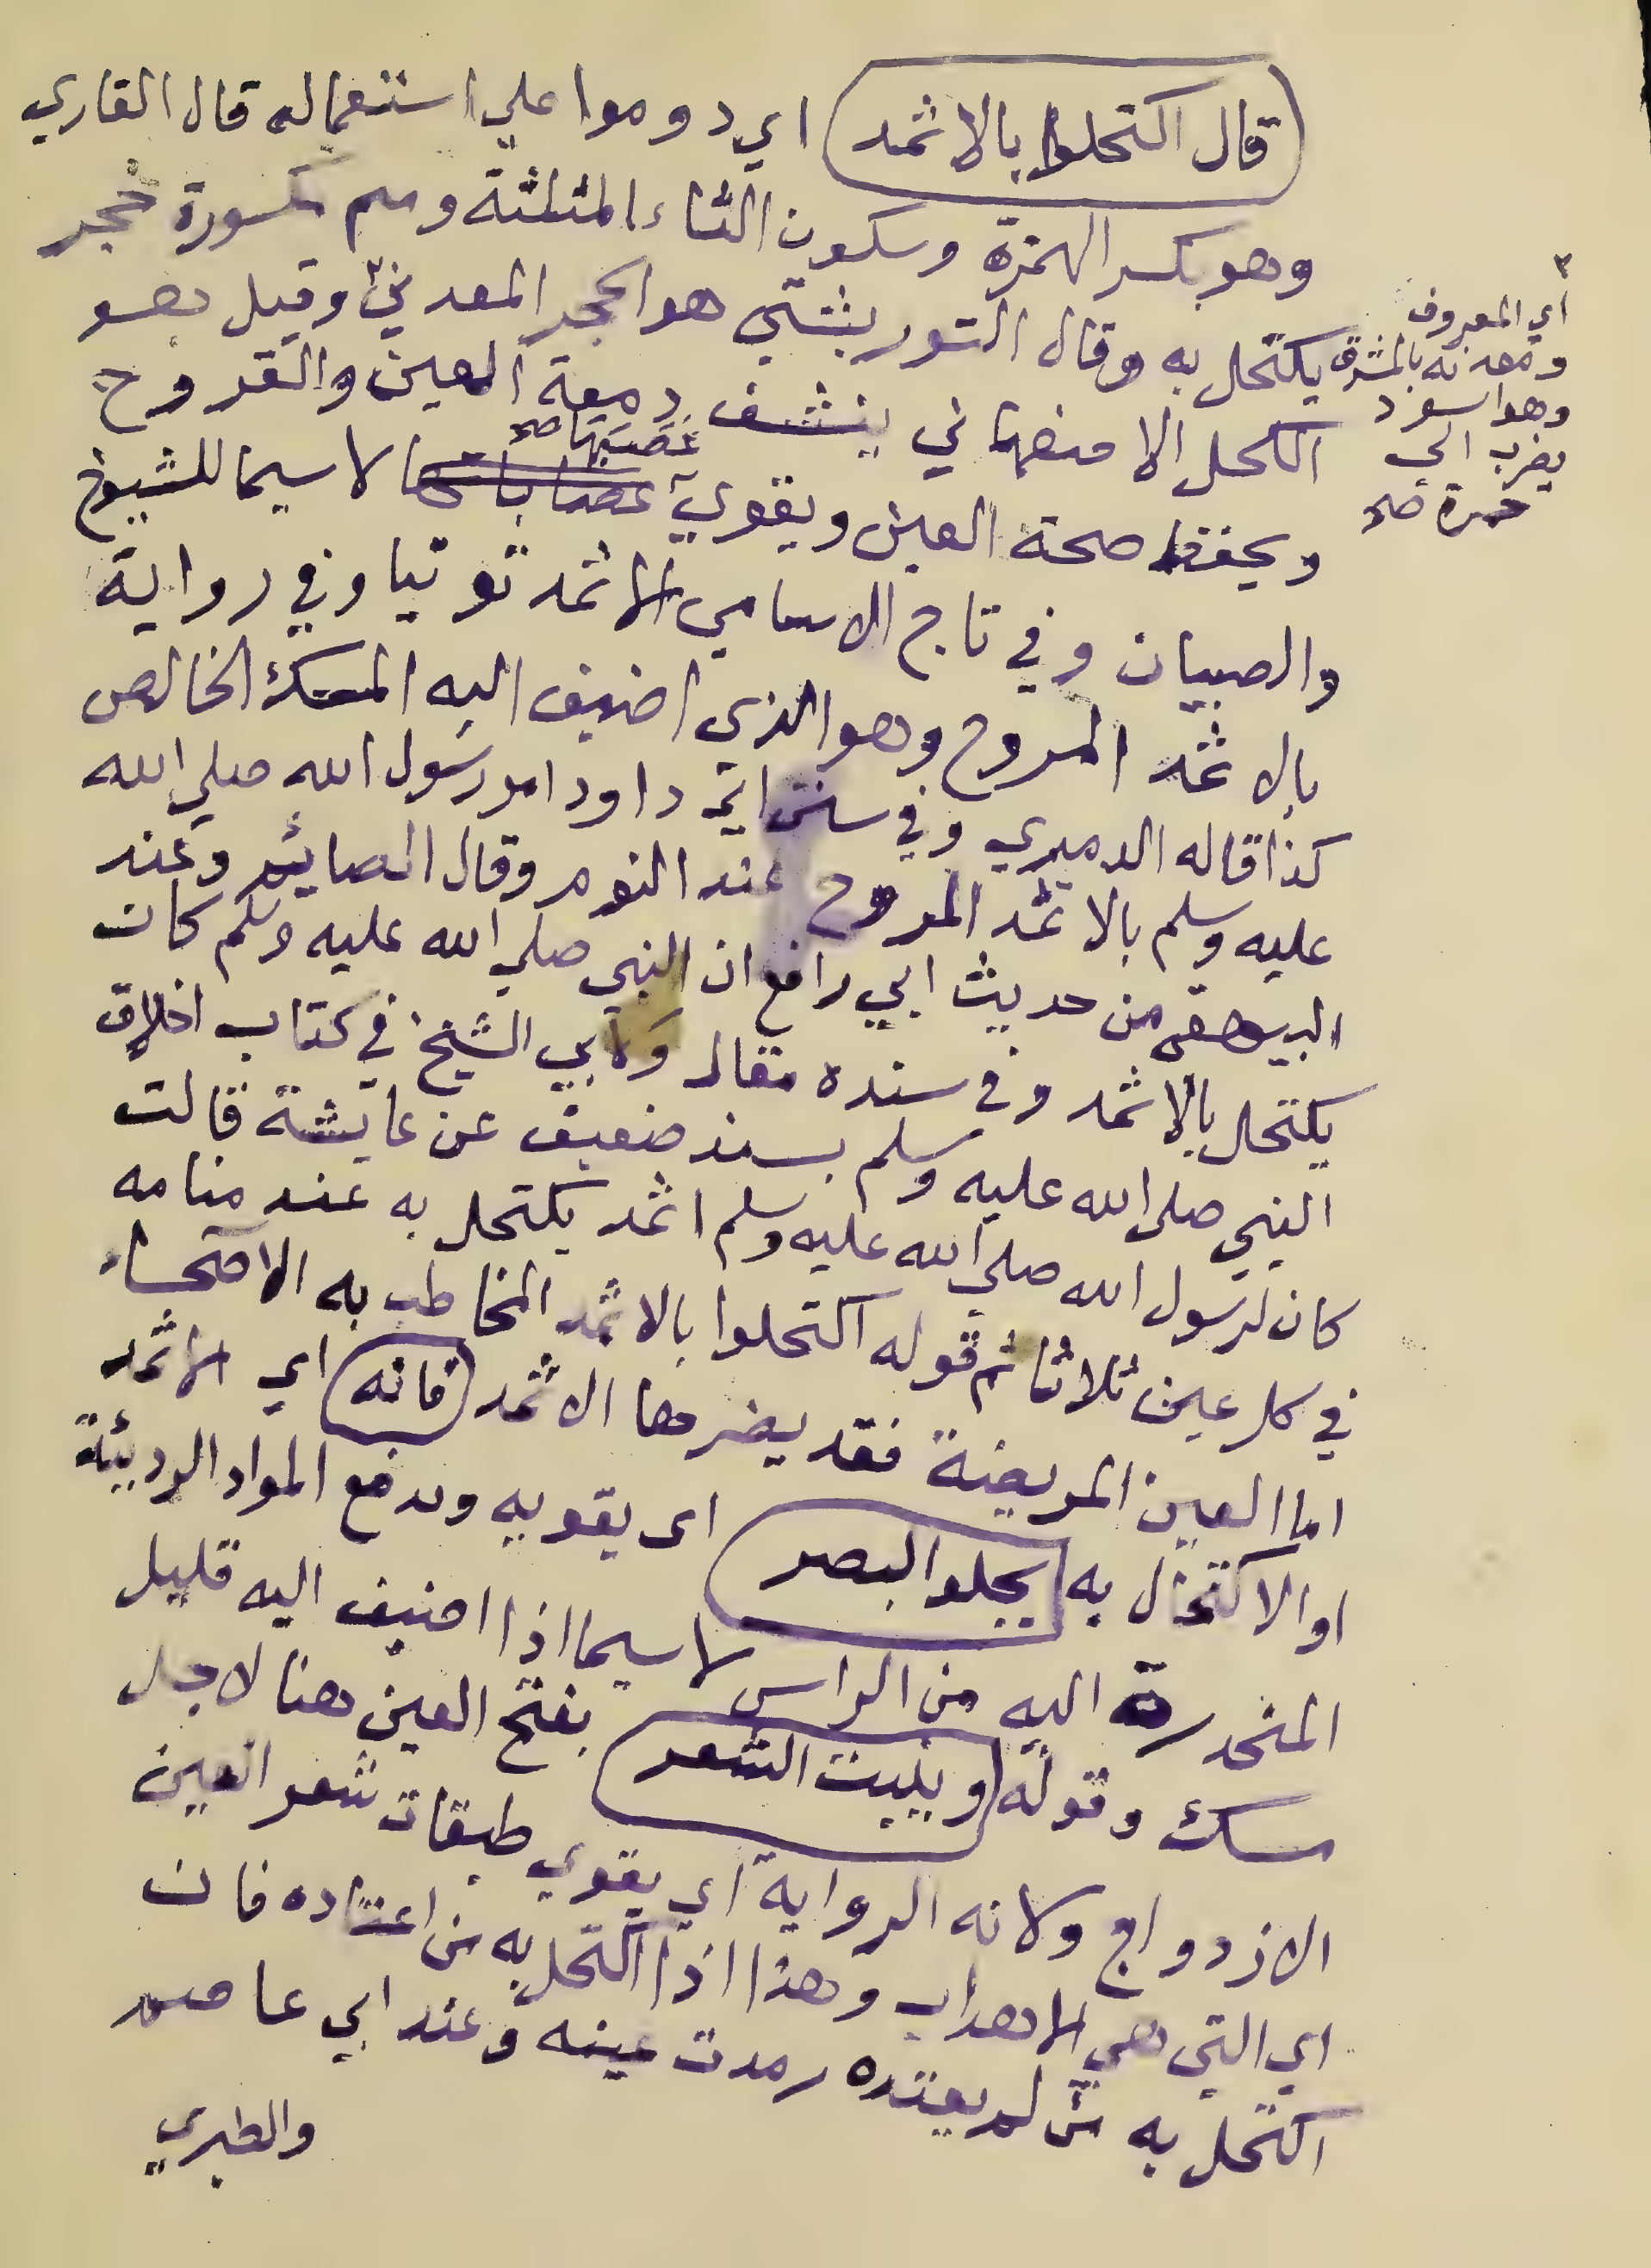 قال اكتحلوا بالاثمد اي دوموا علي استعماله قال القاري
وهو بكسر الهمزة وسكون الثاء المثلثة وميم مكسورة حجر
يكتحل به وقال التوربشتي هو الحجر المعدني وقيل هو
الكحل الاصفهاني ينشف دمعة العين والقروح
ويحفظ صحة العين ويقوي عصباتها لا سيما للشيوخ
عَصَبَها صح
والصبيان وفي تاج الاسامي الاثمد توتيا وفي رواية
بالاثمد المروح وهو الذي اضيف اليه المسك الخالص
كذا قاله الدميري وفي سنن ابي داود امر رسول الله صلي الله
عليه وسلم بالاثمد المروح عند النوم وقال الصائم وعند
البيهقي من حديث ابي رافع ان النبي صلي الله عليه وسلم كان
يكتحل بالاثمد وفي سنده مقال ولابي الشيخ في كتاب اخلاق
النبي صلى الله عليه وسلم بسند ضعيف عن عايشة قالت
كان لرسول الله صلي الله عليه وسلم اثمد يكتحل به عند منامه
في كل عين ثلاثا ثم قوله اكتحلوا بالاثمد المخاطب به الاصحاء
اما العين المريضة فقد يضرها الاثمد فانه اي الاثمد
او الاكتحال به يجلو البصر اى يقويه ويدفع المواد الرديئة
المنحدرة اليه من الراس لا سيما اذا اضيف اليه قليل
مسك وقوله وينبت الشعر بفتح العين هنا لاجل
الازدواج ولانه الرواية اي يقوي طبقات شعر العين
اي التي هي الاهداب وهذا اذا اكتحل به من اعتاده فان
اكتحل به من لم يعتده رمدت عينه وعند ابي عاصم
والطبري
٢
اي المعروف
ومعدنه بالمشرق
وهو اسود
يضرب الي
حمرة صح